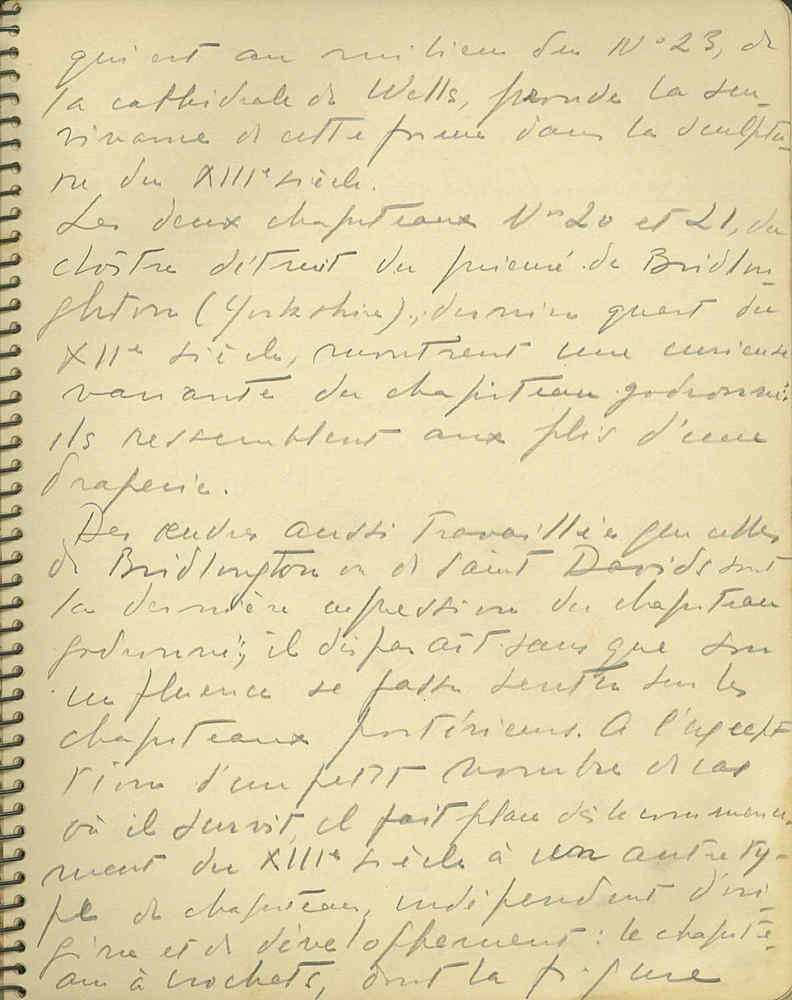 qui est au milieu du Nº 23, de
la cathédrale de Wells, prouve la sur-
vivance de cette forme dans la sculptu-
re du XIIIe siècle.
Les deux chapiteaux Nos 20 et 21, du
cloître détruit du prieuré de Bridlin
ghton (Yorkshire), dernier quart du
XIIe siècle, montrent une curieuse
variante du chapiteau godronné:
ils ressemblent aux plis d'une
draperie.
Des œuvres aussi travaillées que celles
de Bridlington ou de Saint Davids sont
la dernière expression du chapiteau
godronné; il disparaît sans que son
influence se fasse sentir sur les
chapiteaux postérieurs. A l'excep-
tion d'un petit nombre de cas
où il survit, il fait place dès le commence-
ment du XIIIe siècle à un autre ty-
pe de chapiteau, indépendant d'ori-
gine et de développement: le chapite-
au à crochets, dont la figure